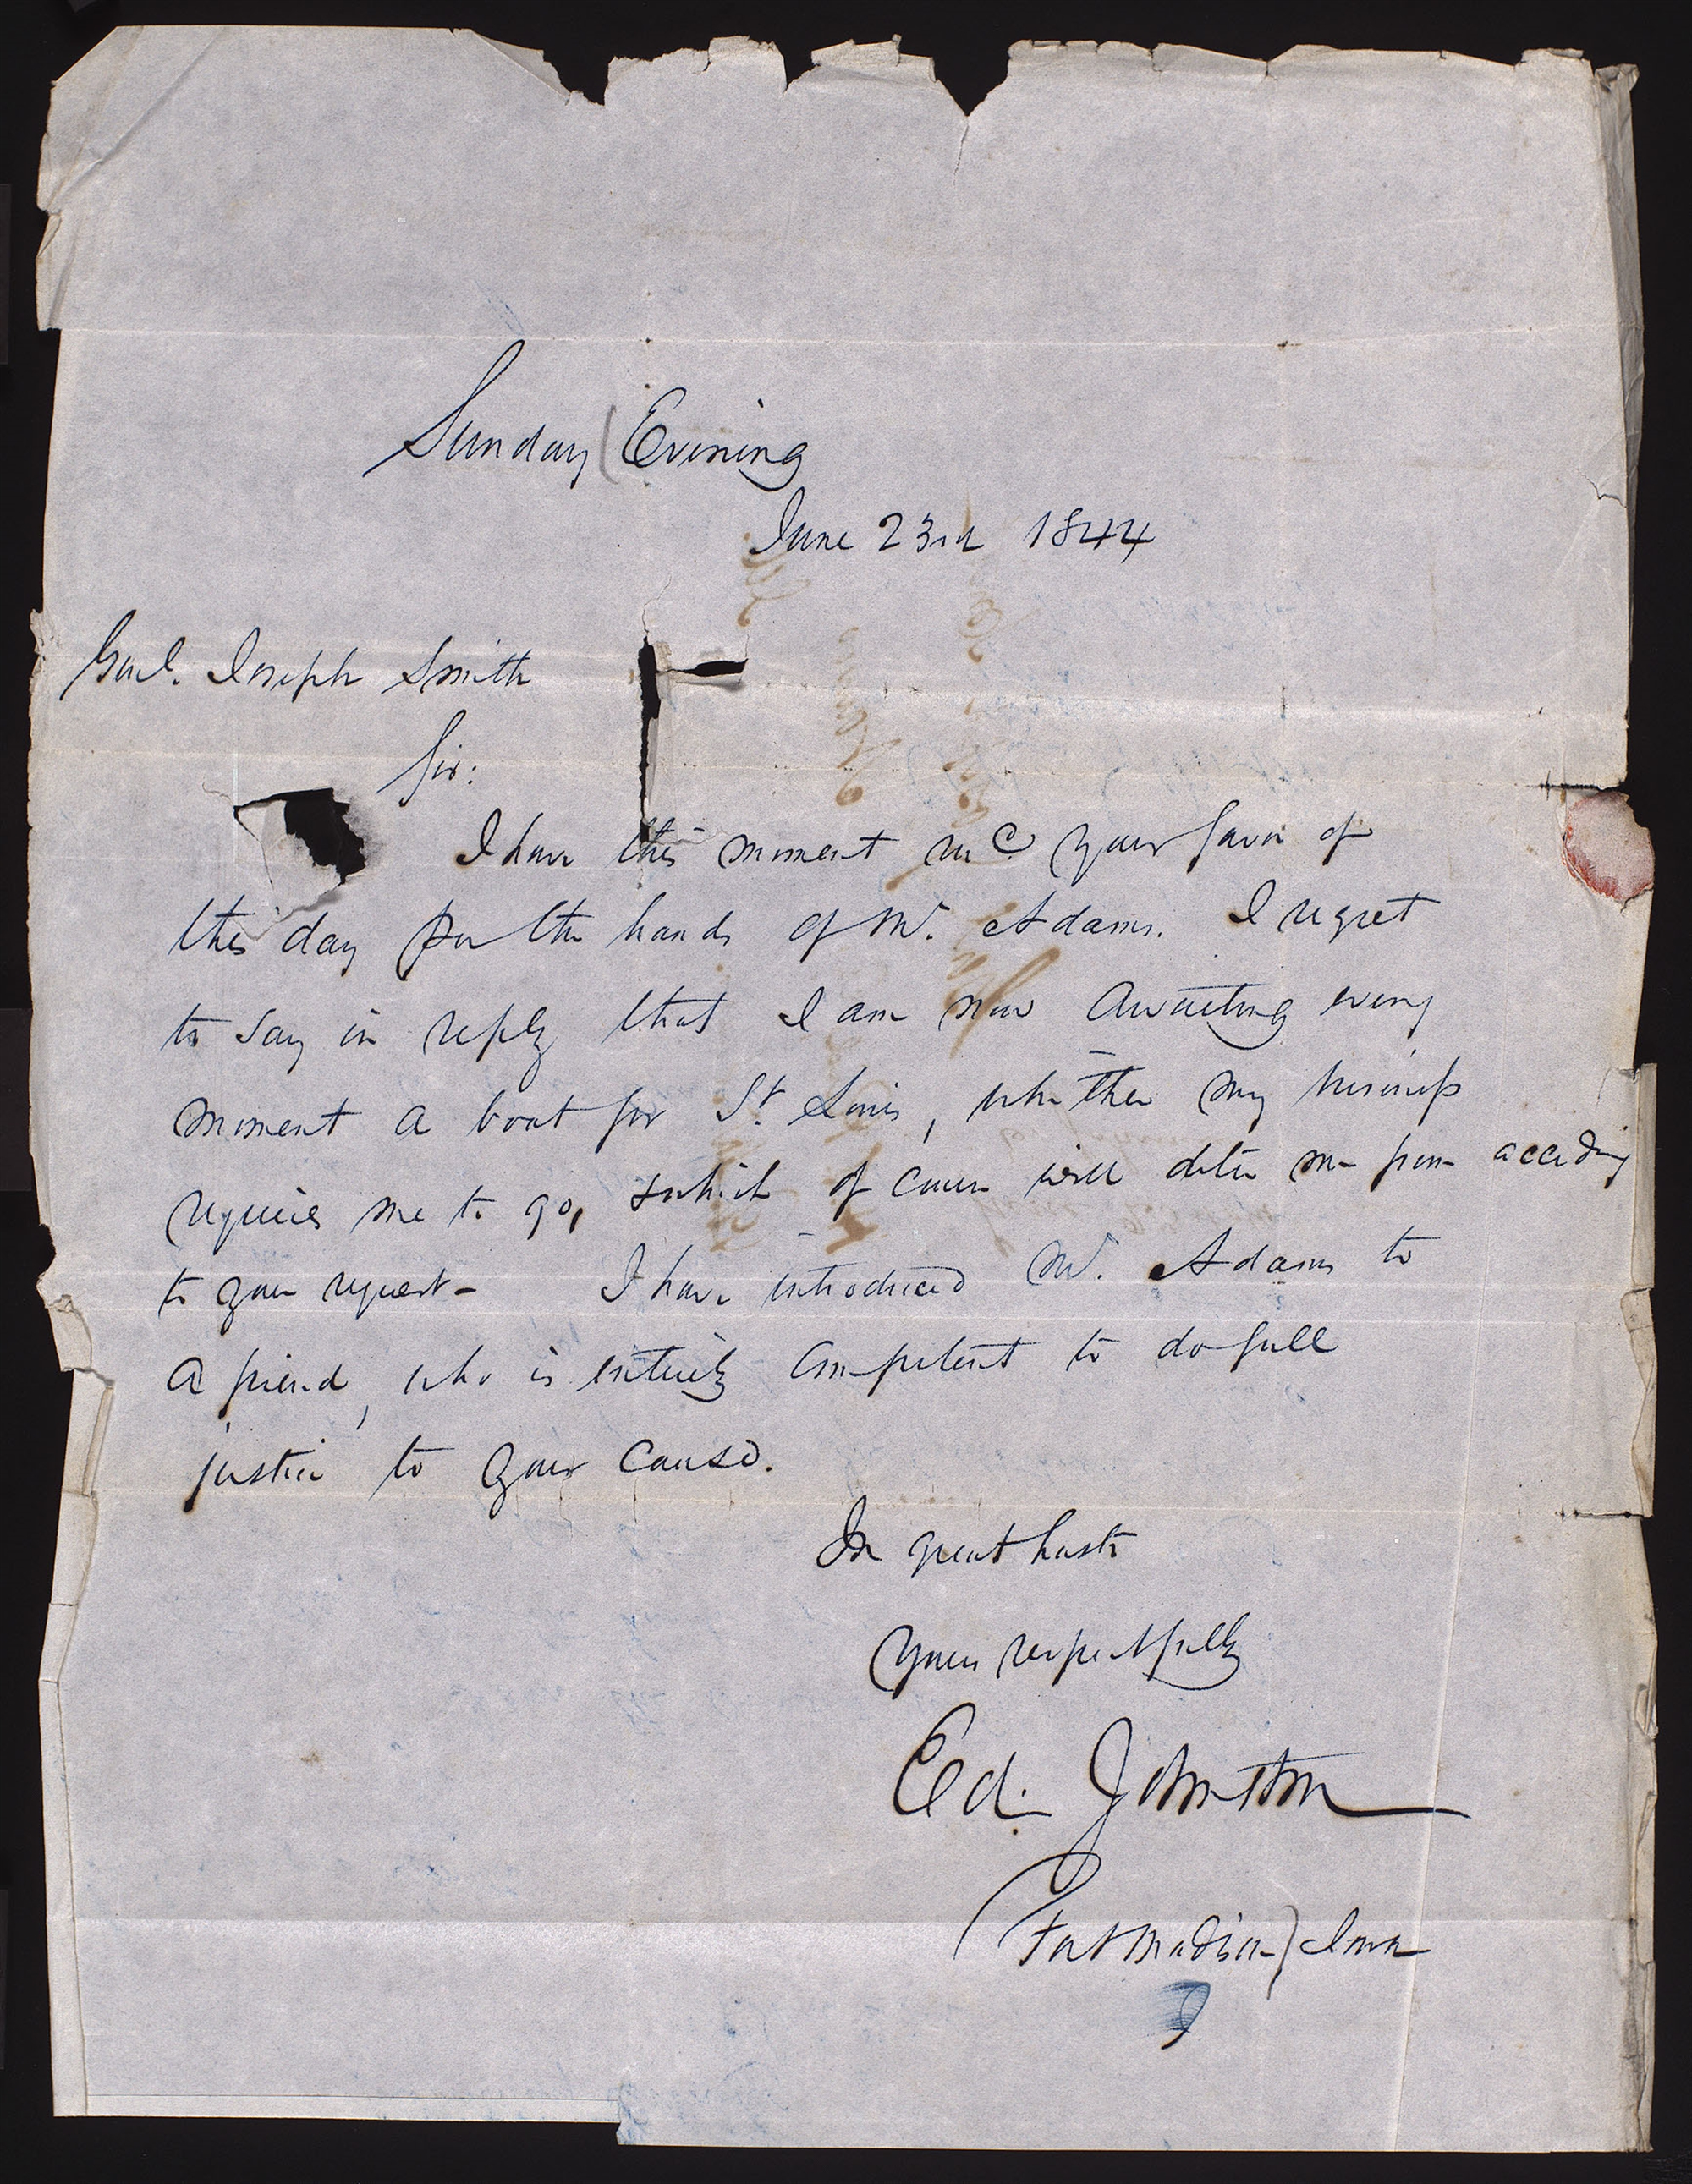 Sunday Evening
June 23rd 1844
Genl. Joseph Smith
Sir:
I have this moment recd. your favor of
this day per the hands of Mr. Adams. I regret
to say in reply that I am now awaiting every
moment a boat for St. Louis, whither my business
requires me to go, which of course will deter me from acceding
to your request- I have introduced Mr. Adams to
a friend, who is entirely competent to do full
justice to your cause.
In great haste
Yours respectfully
Ed. Johnston
Fort Madison) Iowa